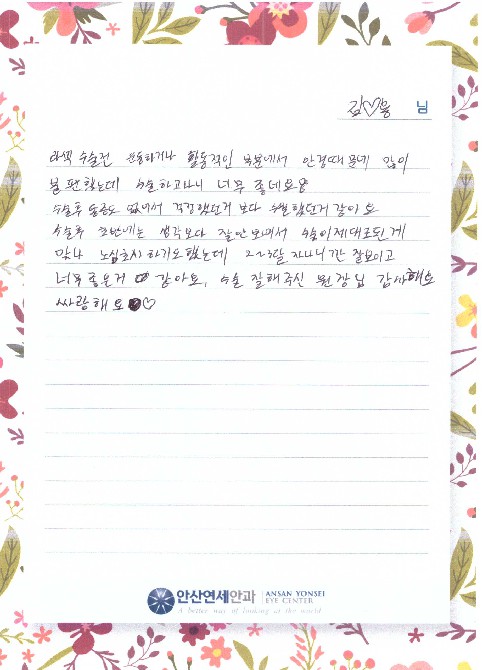 김♡용 님
라섹 수술전 운동하거나 활동적인 부분에서 안경때문에 많이
불편했는데 수술하고나니 너무 좋네요
수술후 통증도 없어서 걱정했던거 보다 수월했던거 같아요
수술후 초반에는 생각보다 잘 안보여서 수술이 제대로된게
맞나 노심초사 하기도 했는데 2~3달 지나니간 잘보이고
너무 좋은거 같아요, 수술 잘해주신 원장님 감사해요
싸랑해요 ♡
안산연세안과 ANSAN YONSEI
EYE CENTER
A better way of looking at the world